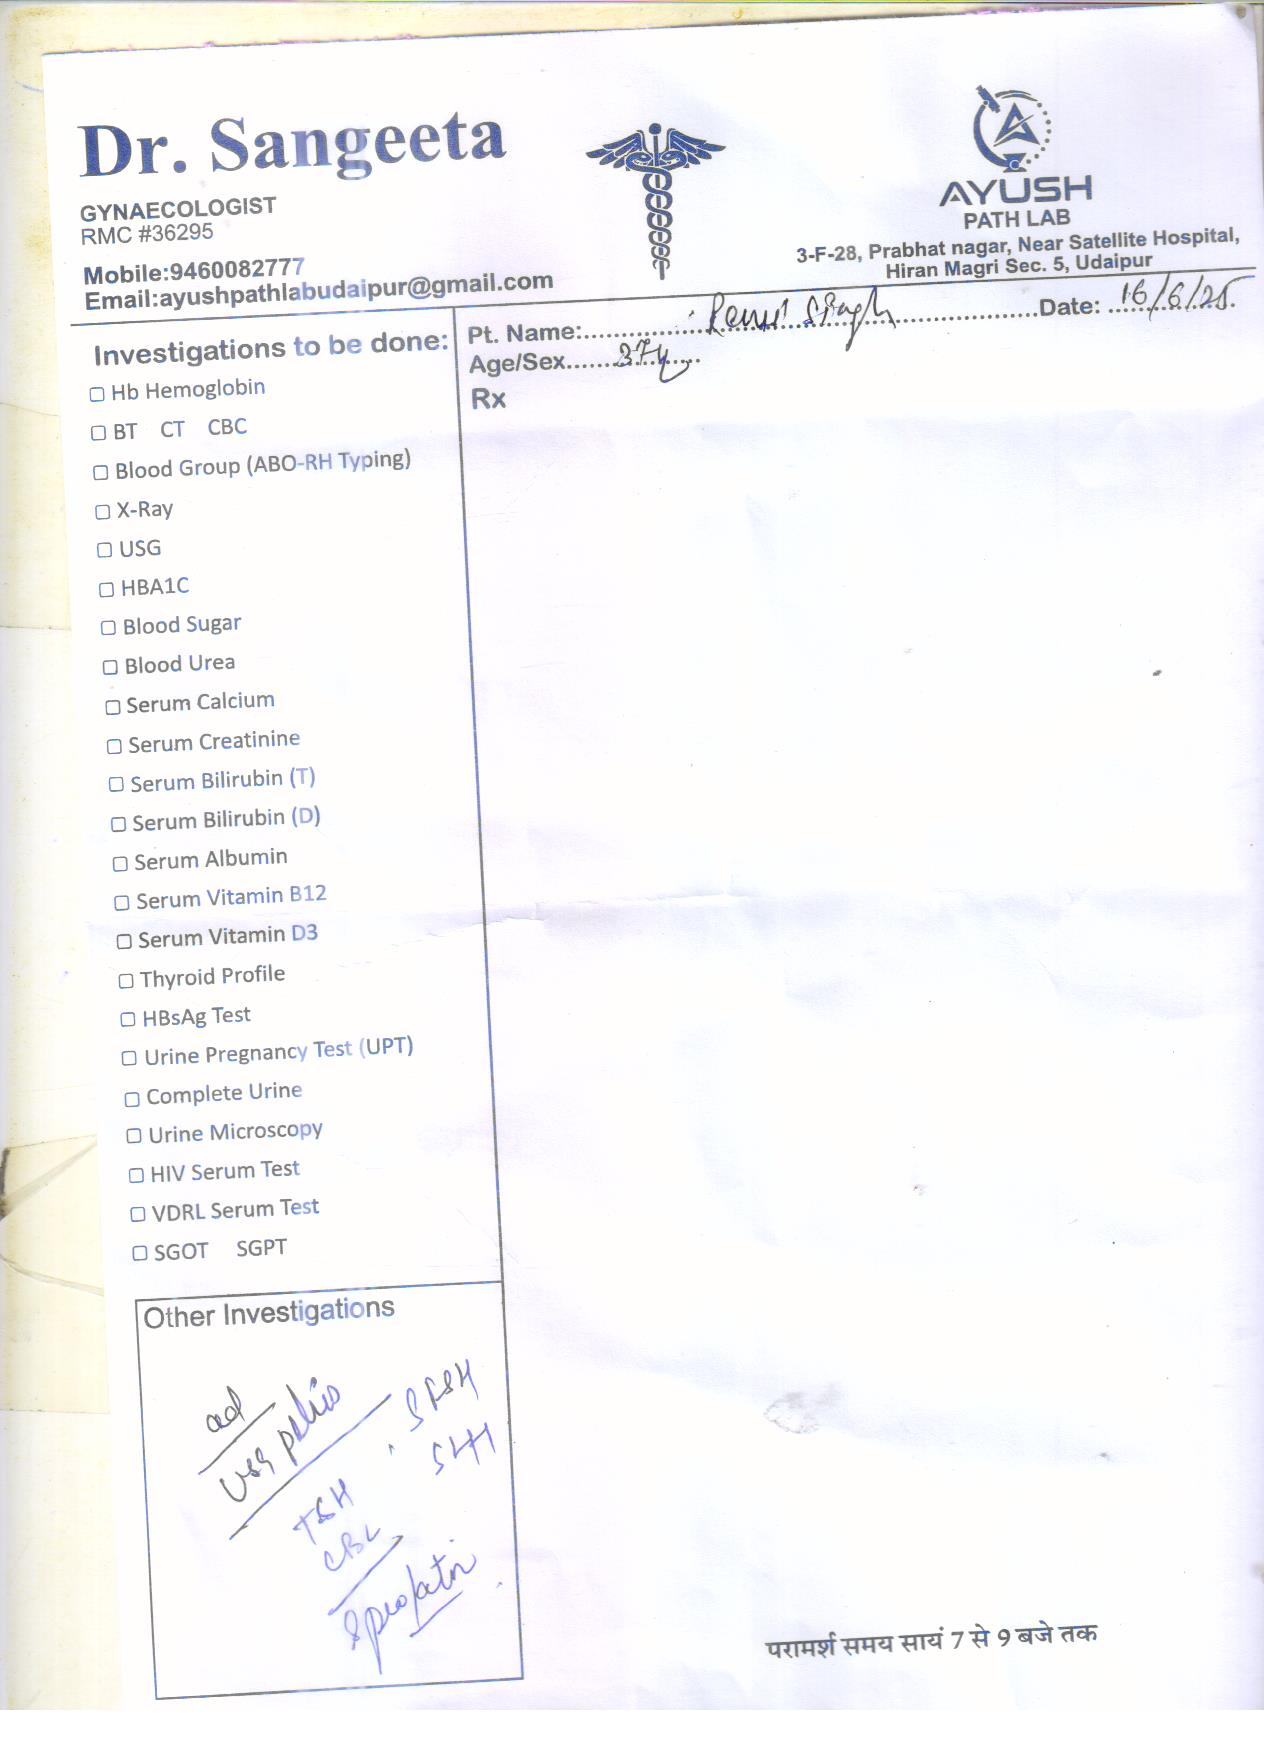 Dr. Sangeeta
GYNAECOLOGIST
RMC #36295
Mobile:9460082777
Email:ayushpathlabudaipur@gmail.com
AYUSH
PATH LAB
3-F-28, Prabhat nagar, Near Satellite Hospital,
Hiran Magri Sec. 5, Udaipur
Pt. Name:.......... Singh ..........Date: 16/6/25.
Age/Sex.......37y......
Rx
Investigations to be done:
Hb Hemoglobin
BT CT CBC
Blood Group (ABO-RH Typing)
X-Ray
USG
HBA1C
Blood Sugar
Blood Urea
Serum Calcium
Serum Creatinine
Serum Bilirubin (T)
Serum Bilirubin (D)
Serum Albumin
Serum Vitamin B12
Serum Vitamin D3
Thyroid Profile
HBsAg Test
Urine Pregnancy Test (UPT)
Complete Urine
Urine Microscopy
HIV Serum Test
VDRL Serum Test
SGOT SGPT
Other Investigations
ad
USG pelvis
S FSH
S LH
TSH
CBC
S prolactin
परामर्श समय सायं 7 से 9 बजे तक